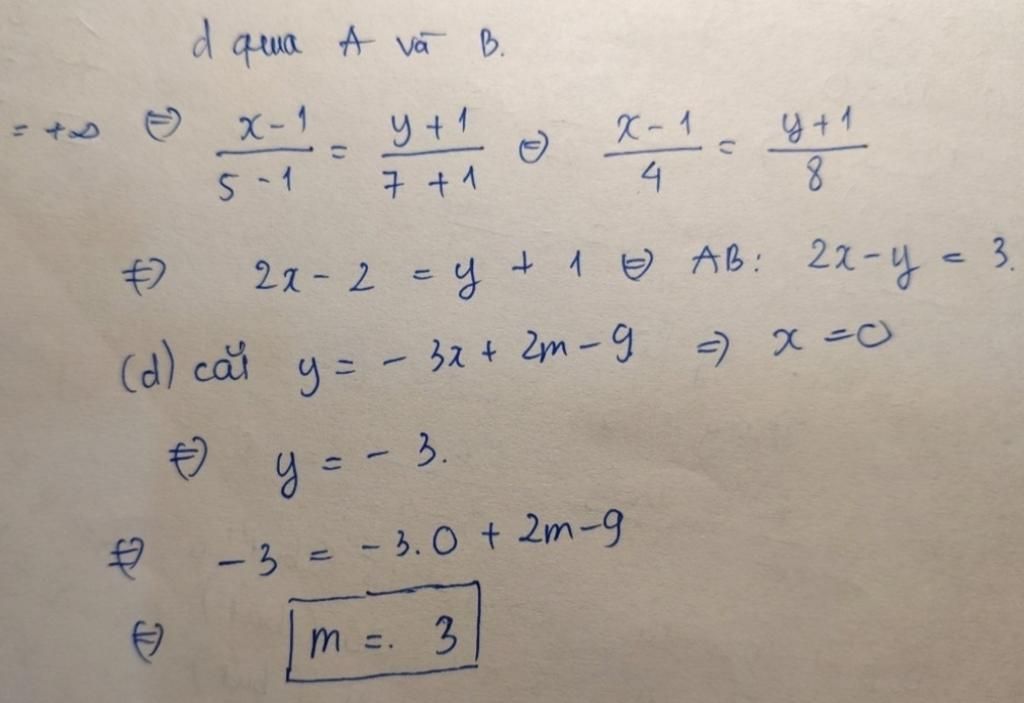 d qua A và B.
= +∞ ⇔ (x - 1)/(5 - 1) = (y + 1)/(7 + 1) ⇔ (x - 1)/4 = (y + 1)/8
⇔ 2x - 2 = y + 1 ⇔ AB: 2x - y = 3.
(d) cắt y = - 3x + 2m - 9 ⇒ x = 0
⇔ y = - 3.
⇔ -3 = -3.0 + 2m - 9
⇔ m = 3